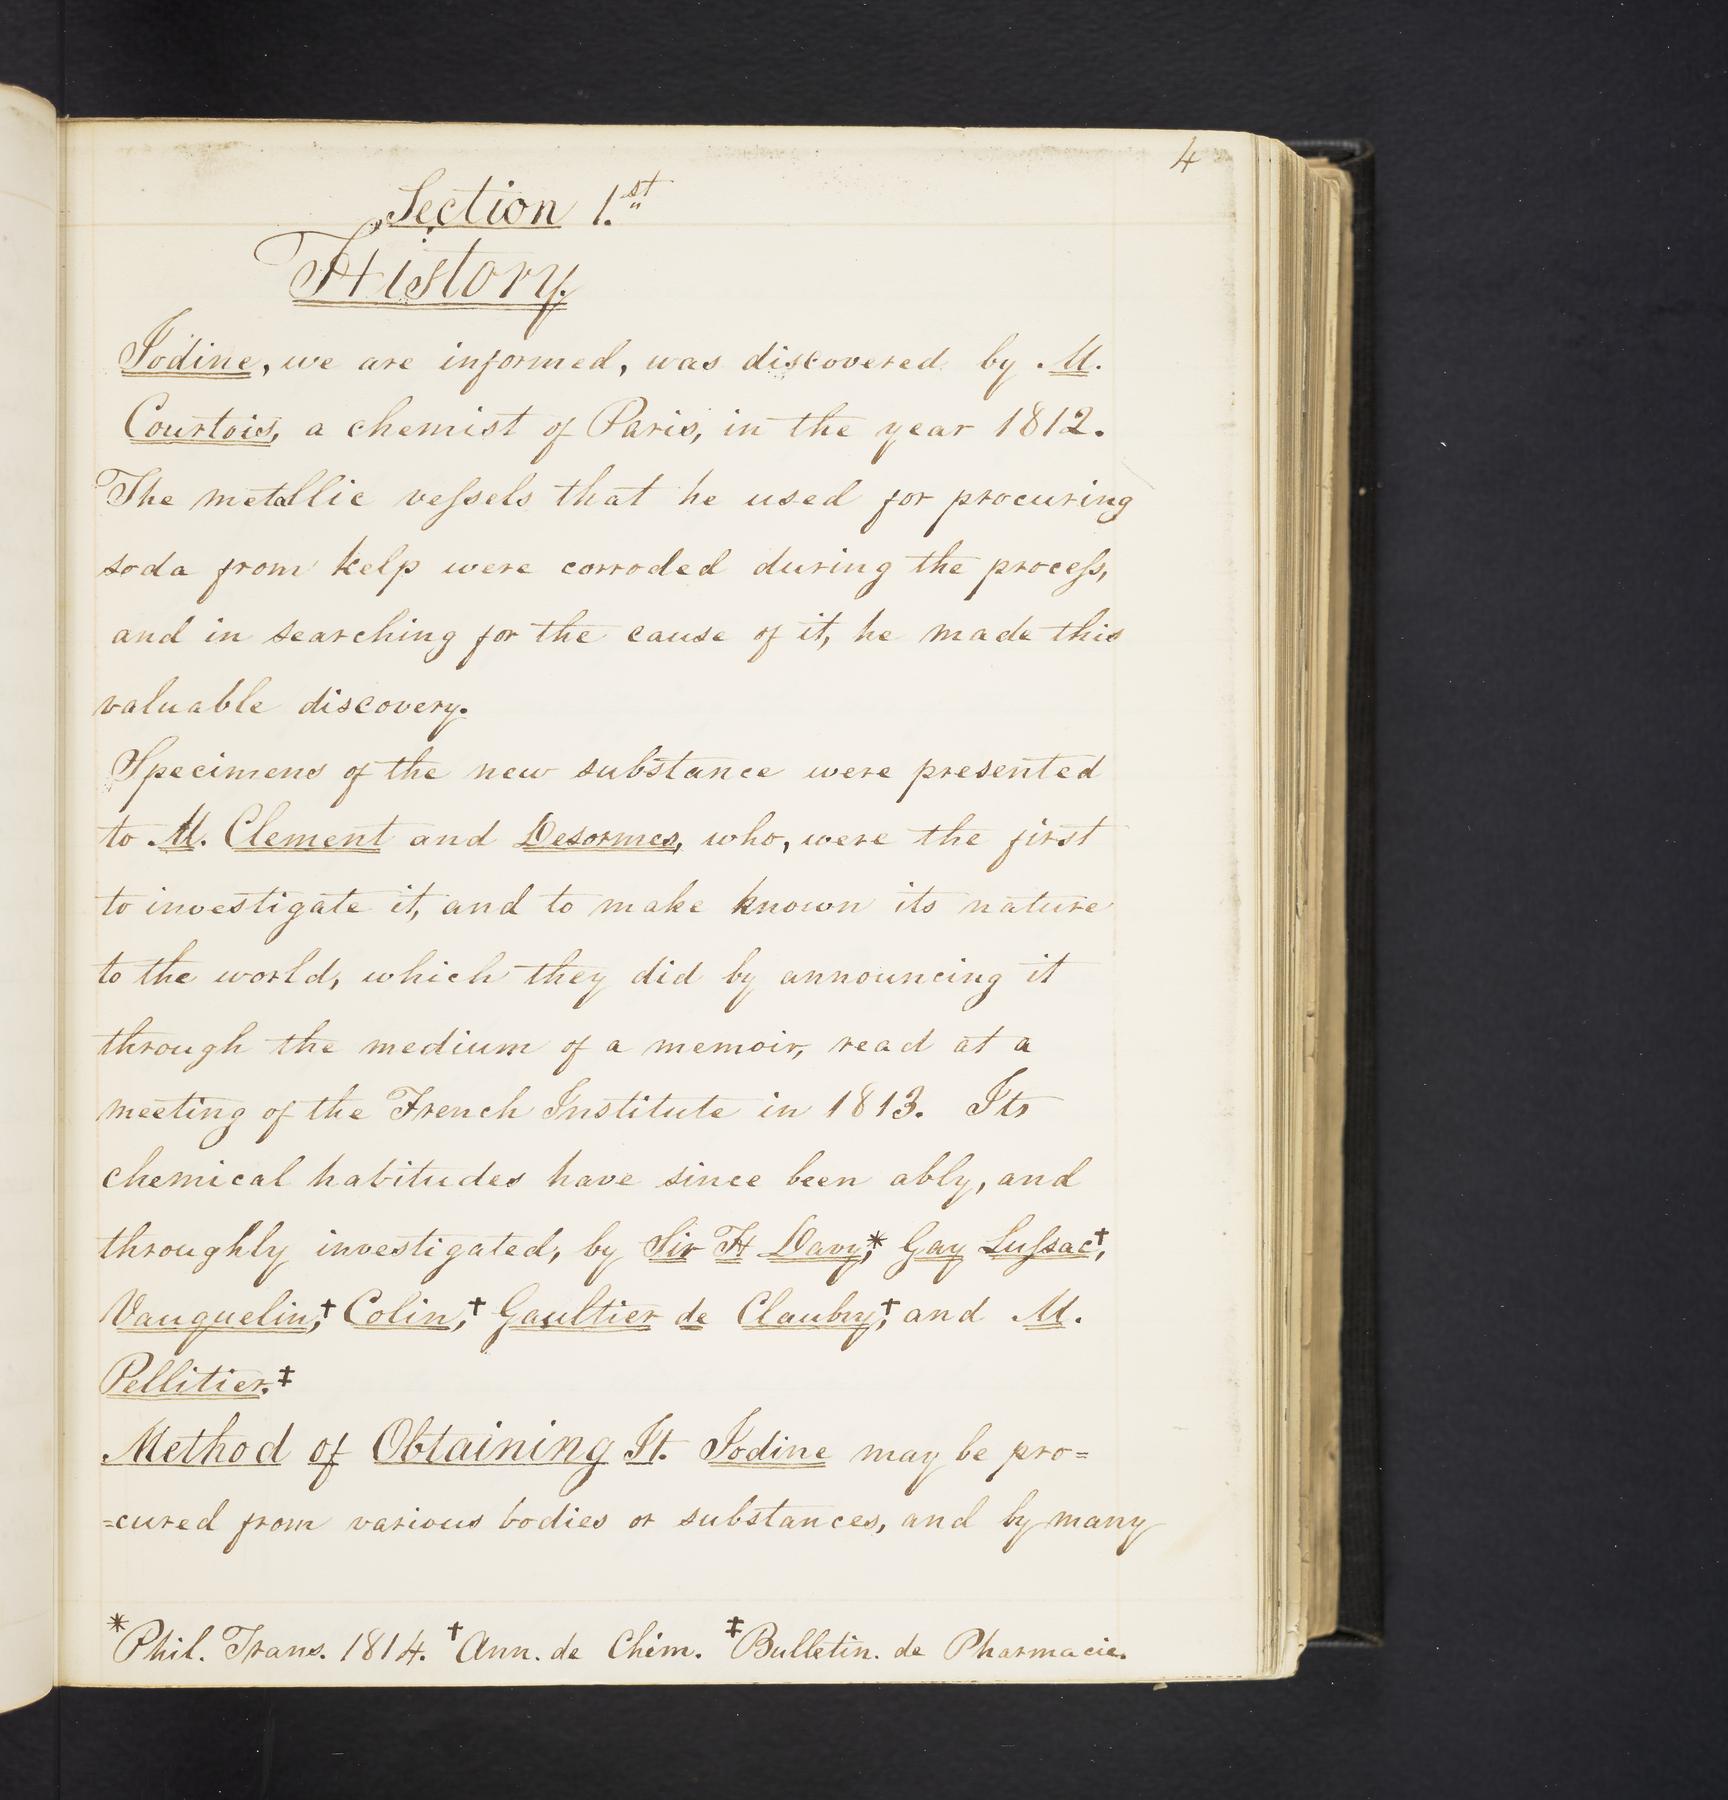 4
Section 1.st
History.
Iodine, we are informed, was discovered by M.
Courtois, a chemist of Paris, in the year 1812.
The metallic veſsels that he used for procuring
soda from kelp were corroded during the proceſs,
and in searching for the cause of it, he made this
valuable discovery.
Specimens of the new substance were presented
to M. Clement and Desormes, who, were the first
to investigate it, and to make known its nature
to the world, which they did by announcing it
through the medium of a memoir, read at a
meeting of the French Institute in 1813. Its
chemical habitudes have since been ably, and
throughly investigated, by Sir H Davy,* Gay Luſsac†,
Vauquelin,† Colin,† Gaultier de Claubry,† and M.
Pellitier.‡
Method of Obtaining It. Iodine may be pro=
=cured from various bodies or substances, and by many
*Phil. Trans. 1814. †Ann. de Chim. ‡Bulletin. de Pharmacie.